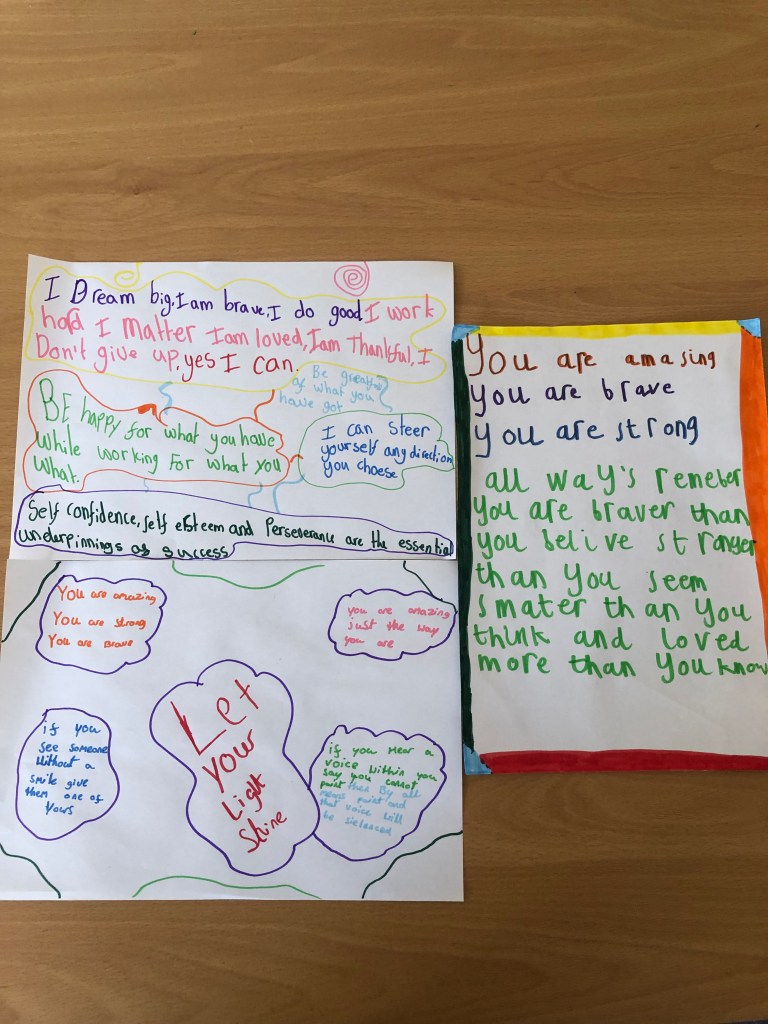 I Dream big, I am brave, I do good I work
hard I matter I am loved, I am thankful, I
Don't give up, yes I can.
Be greatful
of what you
have got
BE happy for what you have
while working for what you
what.
I can steer
yourself any direction
you choese
Self confidence, self esteem and Perseverance are the essential
underpinnings of success
You are amazing
You are strong
You are Brave
you are amazing
just the way
you are
Let
your
Light
Shine
if you
see someone
without a
smile give
them one of
yours
if you hear a
voice within you
say you cannot
paint then By all
means paint and
that voice will
be sielenced
You are amasing
you are brave
you are strong
all way's remeber
You are braver than
you belive stronger
than you seem
smater than you
think and loved
more than you know